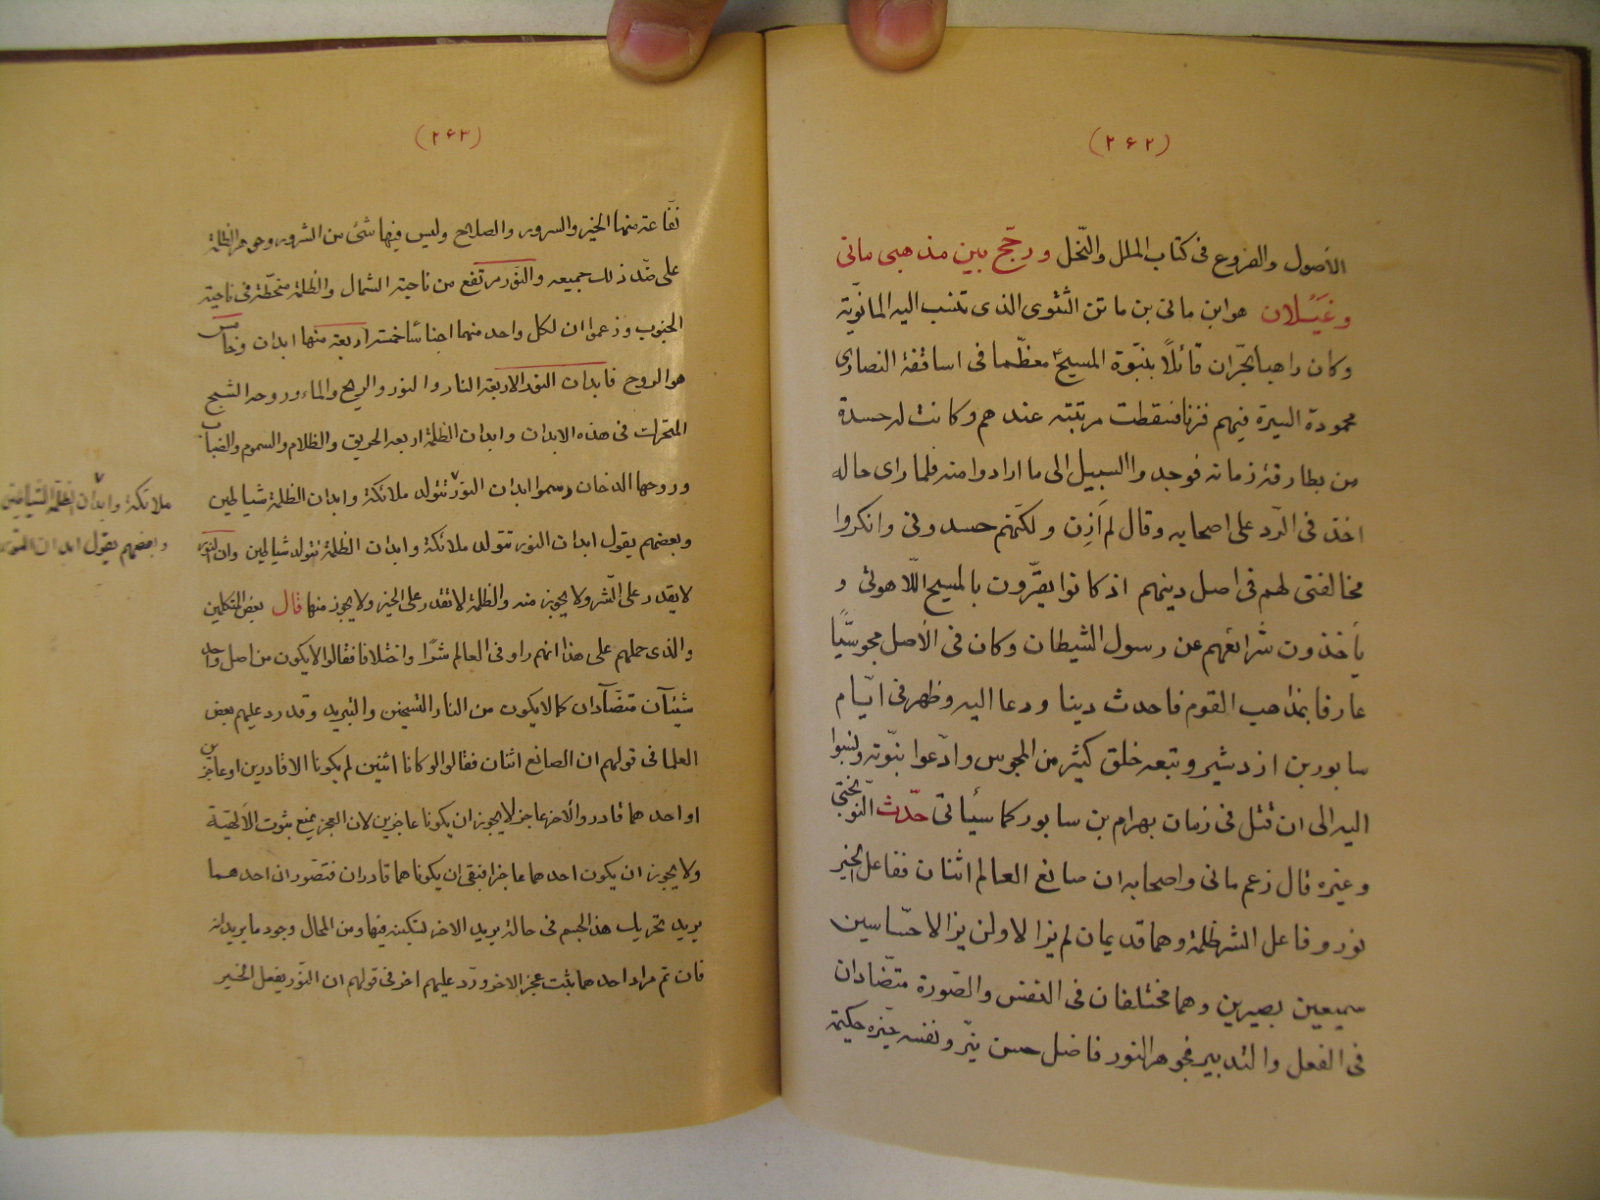 (۲۶۲)
الأصول والفروع فی کتاب الملل والنّحل ورجّح بین مذهبی مانی
وغیلان هو ابن مانی بن ماتن الثنوی الذی تنسب الیه المانویّة
وکان راهبا بحرّان قائلاً بنبوّة المسیح معظّما فی اساقفة النصاری
محمودة السیرة فیهم فزنا فسقطت مرتبته عندهم وکانت له حسدة
من بطارقة زمانه فوجدوا السبیل الی ما ارادوا منه فلما رای حاله
اخذ فی الرّد علی اصحابه وقال لم اَزنِ ولکنّهم حسدونی وانکروا
مخالفتی لهم فی اصل دینهم اذ کانوا یقرّون بالمسیح اللّاهوتی و
یأخذون شرائعهم عن رسول الشیطان وکان فی الاصل مجوسیًّا
عارفا بمذاهب القوم فاحدث دینا ودعا الیه وظهر فی ایّام
سابور بن ازدشیر وتبعه خلق کثیر من المجوس وادّعوا نبوّته ونسبوا
الیه الی ان قتل فی زمان بهرام بن سابور کما سیأتی حدّث النّوبختی
وغیره قال زعم مانی واصحابه ان صانع العالم اثنان ففاعل الخیر
نور وفاعل الشر ظلمة وهما قدیمان لم یزالا ولن یزالا حسّاسین
سمیعین بصیرین وهما مختلفان فی النفس والصّورة متضّادان
فی الفعل والتدبیر فجوهر النور فاضل حسن نیّر ونفسه خیّرة حکیمة
(۲۶۳)
نفّاعة منها الخیر والسرور والصلاح ولیس فیها شئ من الشرور وجوهر الظلمة
علی ضّد ذلک جمیعه والنّور مرتفع من ناحیة الشمال والظلمة منحطّة فی ناحیة
الجنوب وزعموا ان لکل واحد منهما اجناسا خمسة اربعة منها ابدان وخامس
هو الروح فابدان النور الاربعة النار والنور والریح والماء وروحه الشبح
المتحرک فی هذه الابدان وابدان الظلمة اربعه الحریق والظلام والسموم والضباب
وروحها الدخان وسموا ابدان النور تتولد ملائکة وابدان الظلمة شیاطین
وبعضهم یقول ابدان النور تتولد ملائکة وابدان الظلمة تتولد شیاطین وان النور
لا یقدر علی الشّر ولا یجوز منه والظلمة لا تقدر علی الخیر ولا یجوز منها قال بعض المتکلمین
والذی حملهم علی هذا انهم راو فی العالم شرًا واختلافا فقالوا لا یکون من اصل واحد
شیئان متضّادان کما لا یکون من النار التسخین والتبرید وقد رد علیهم بعض
العلما فی قولهم ان الصانع اثنان فقالوا لو کانا اثنین لم یکونا الا قادرین او عاجزین
او احدهما قادر والآخر عاجز لا یجوز ان یکونا عاجزین لان العجز یمنع ثبوت الآلهیّة
ولا یجوز ان یکون احدهما عاجزا فبقی ان یکونا هما قادران فتصّور ان احدهما
یرید تحریک هذ الجسم فی حالة یرید الاخر تسکینه فیها ومن المحال وجود ما یریدانه
فان تم مراد احدهما ثبت عجز الاخر ورد علیهم اخر فی قولهم ان النّور یفعل الخیر
ملائکة وابدان الظلمة الشیاطین
وبعضهم یقول ابدان النور